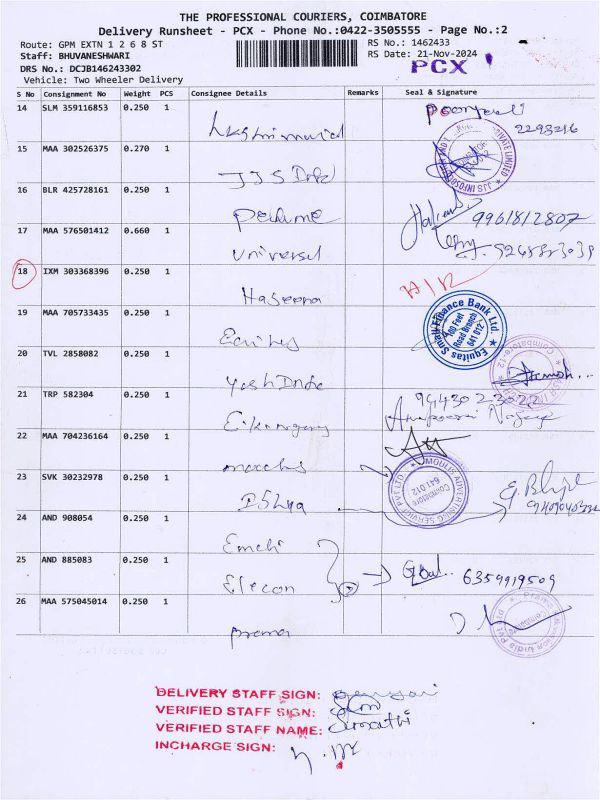 THE PROFESSIONAL COURIERS, COIMBATORE
Delivery Runsheet - PCX - Phone No.:0422-3505555 - Page No.:2
Route: GPM EXTN 1 2 6 8 ST
RS No.: 1462433
Staff: BHUVANESHWARI
RS Date: 21-Nov-2024
DRS No.: DCJB146243302
PCX
Vehicle: Two Wheeler Delivery
S No Consignment No Weight PCS Consignee Details Remarks Seal & Signature
14 SLM 359116853 0.250 1
2293216
15 MAA 302526375 0.270 1 JJS
16 BLR 425728161 0.250 1 Perfume 9961812807
17 MAA 576501412 0.660 1 Universal
18 IXM 303368396 0.250 1 Haseena
19 MAA 705733435 0.250 1 Equitas
Equitas Small Finance Bank Ltd.
100 Feet
Road Branch
641 012
20 TVL 2858082 0.250 1 Yash
21 TRP 582304 0.250 1
9443023022
22 MAA 704236164 0.250 1
23 SVK 30232978 0.250 1
MOULIS ADVERTISING SERVICE PVT LTD
Coimbatore
641 012
24 AND 908054 0.250 1
25 AND 885083 0.250 1 Elecon 6359919509
26 MAA 575045014 0.250 1 prema
DELIVERY STAFF SIGN:
VERIFIED STAFF SIGN:
VERIFIED STAFF NAME: Sumathi
INCHARGE SIGN: